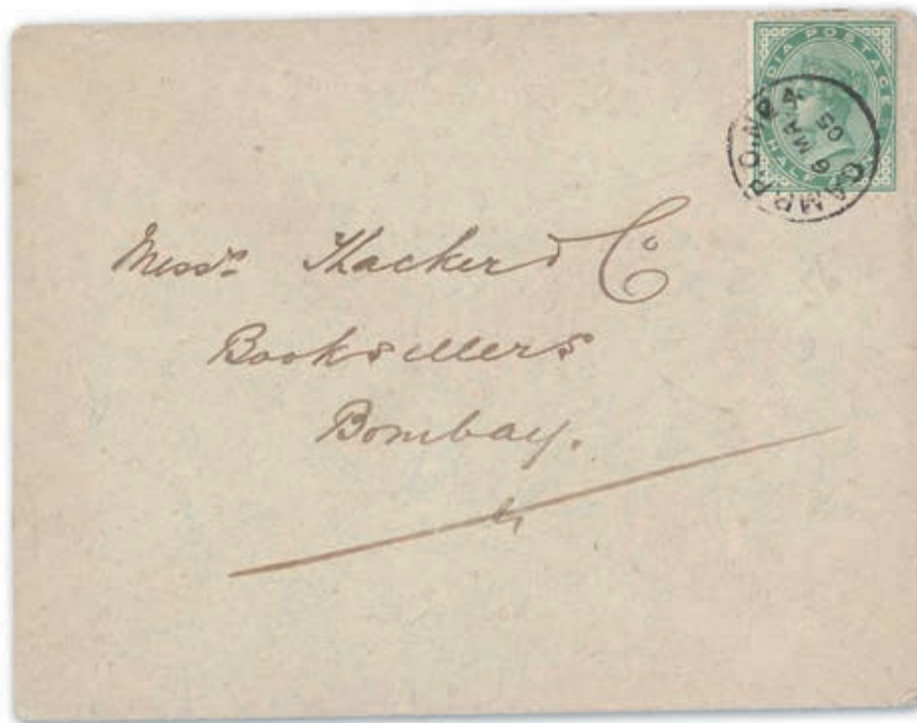 INDIA POSTAGE
HALF
CAMP P.O. No. 24
6 MA
05
Messrs Thacker & Co
Booksellers
Bombay.